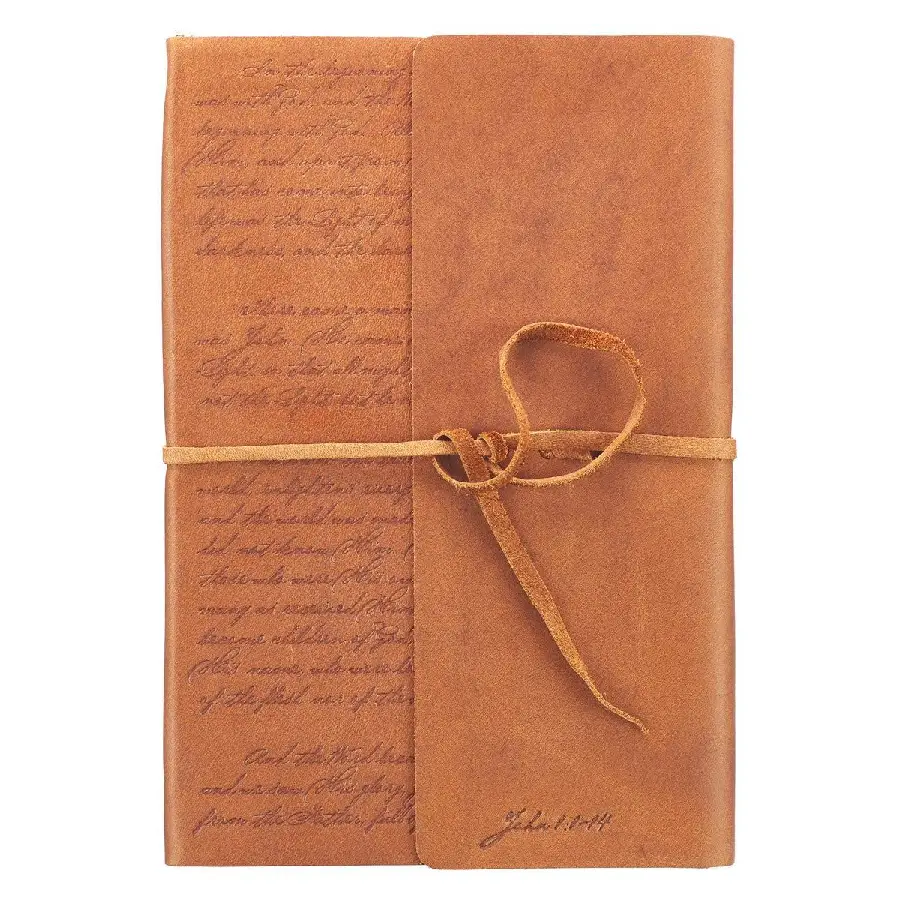 In the beginning
was with God, and the W
beginning with God. All
Him, and apart from
that has come into being
life was the Light of m
darkness, and the dark
There came a man
was John. He came
Light, so that all might
not the Light, but he
world, enlightens every
and the world was made
did not know Him.
those who were His own
many as received Him
become children of God
His name, who were b
of the flesh nor of the
And the Word bec
and we saw His glory
from the Father, full of
John 1:1-14